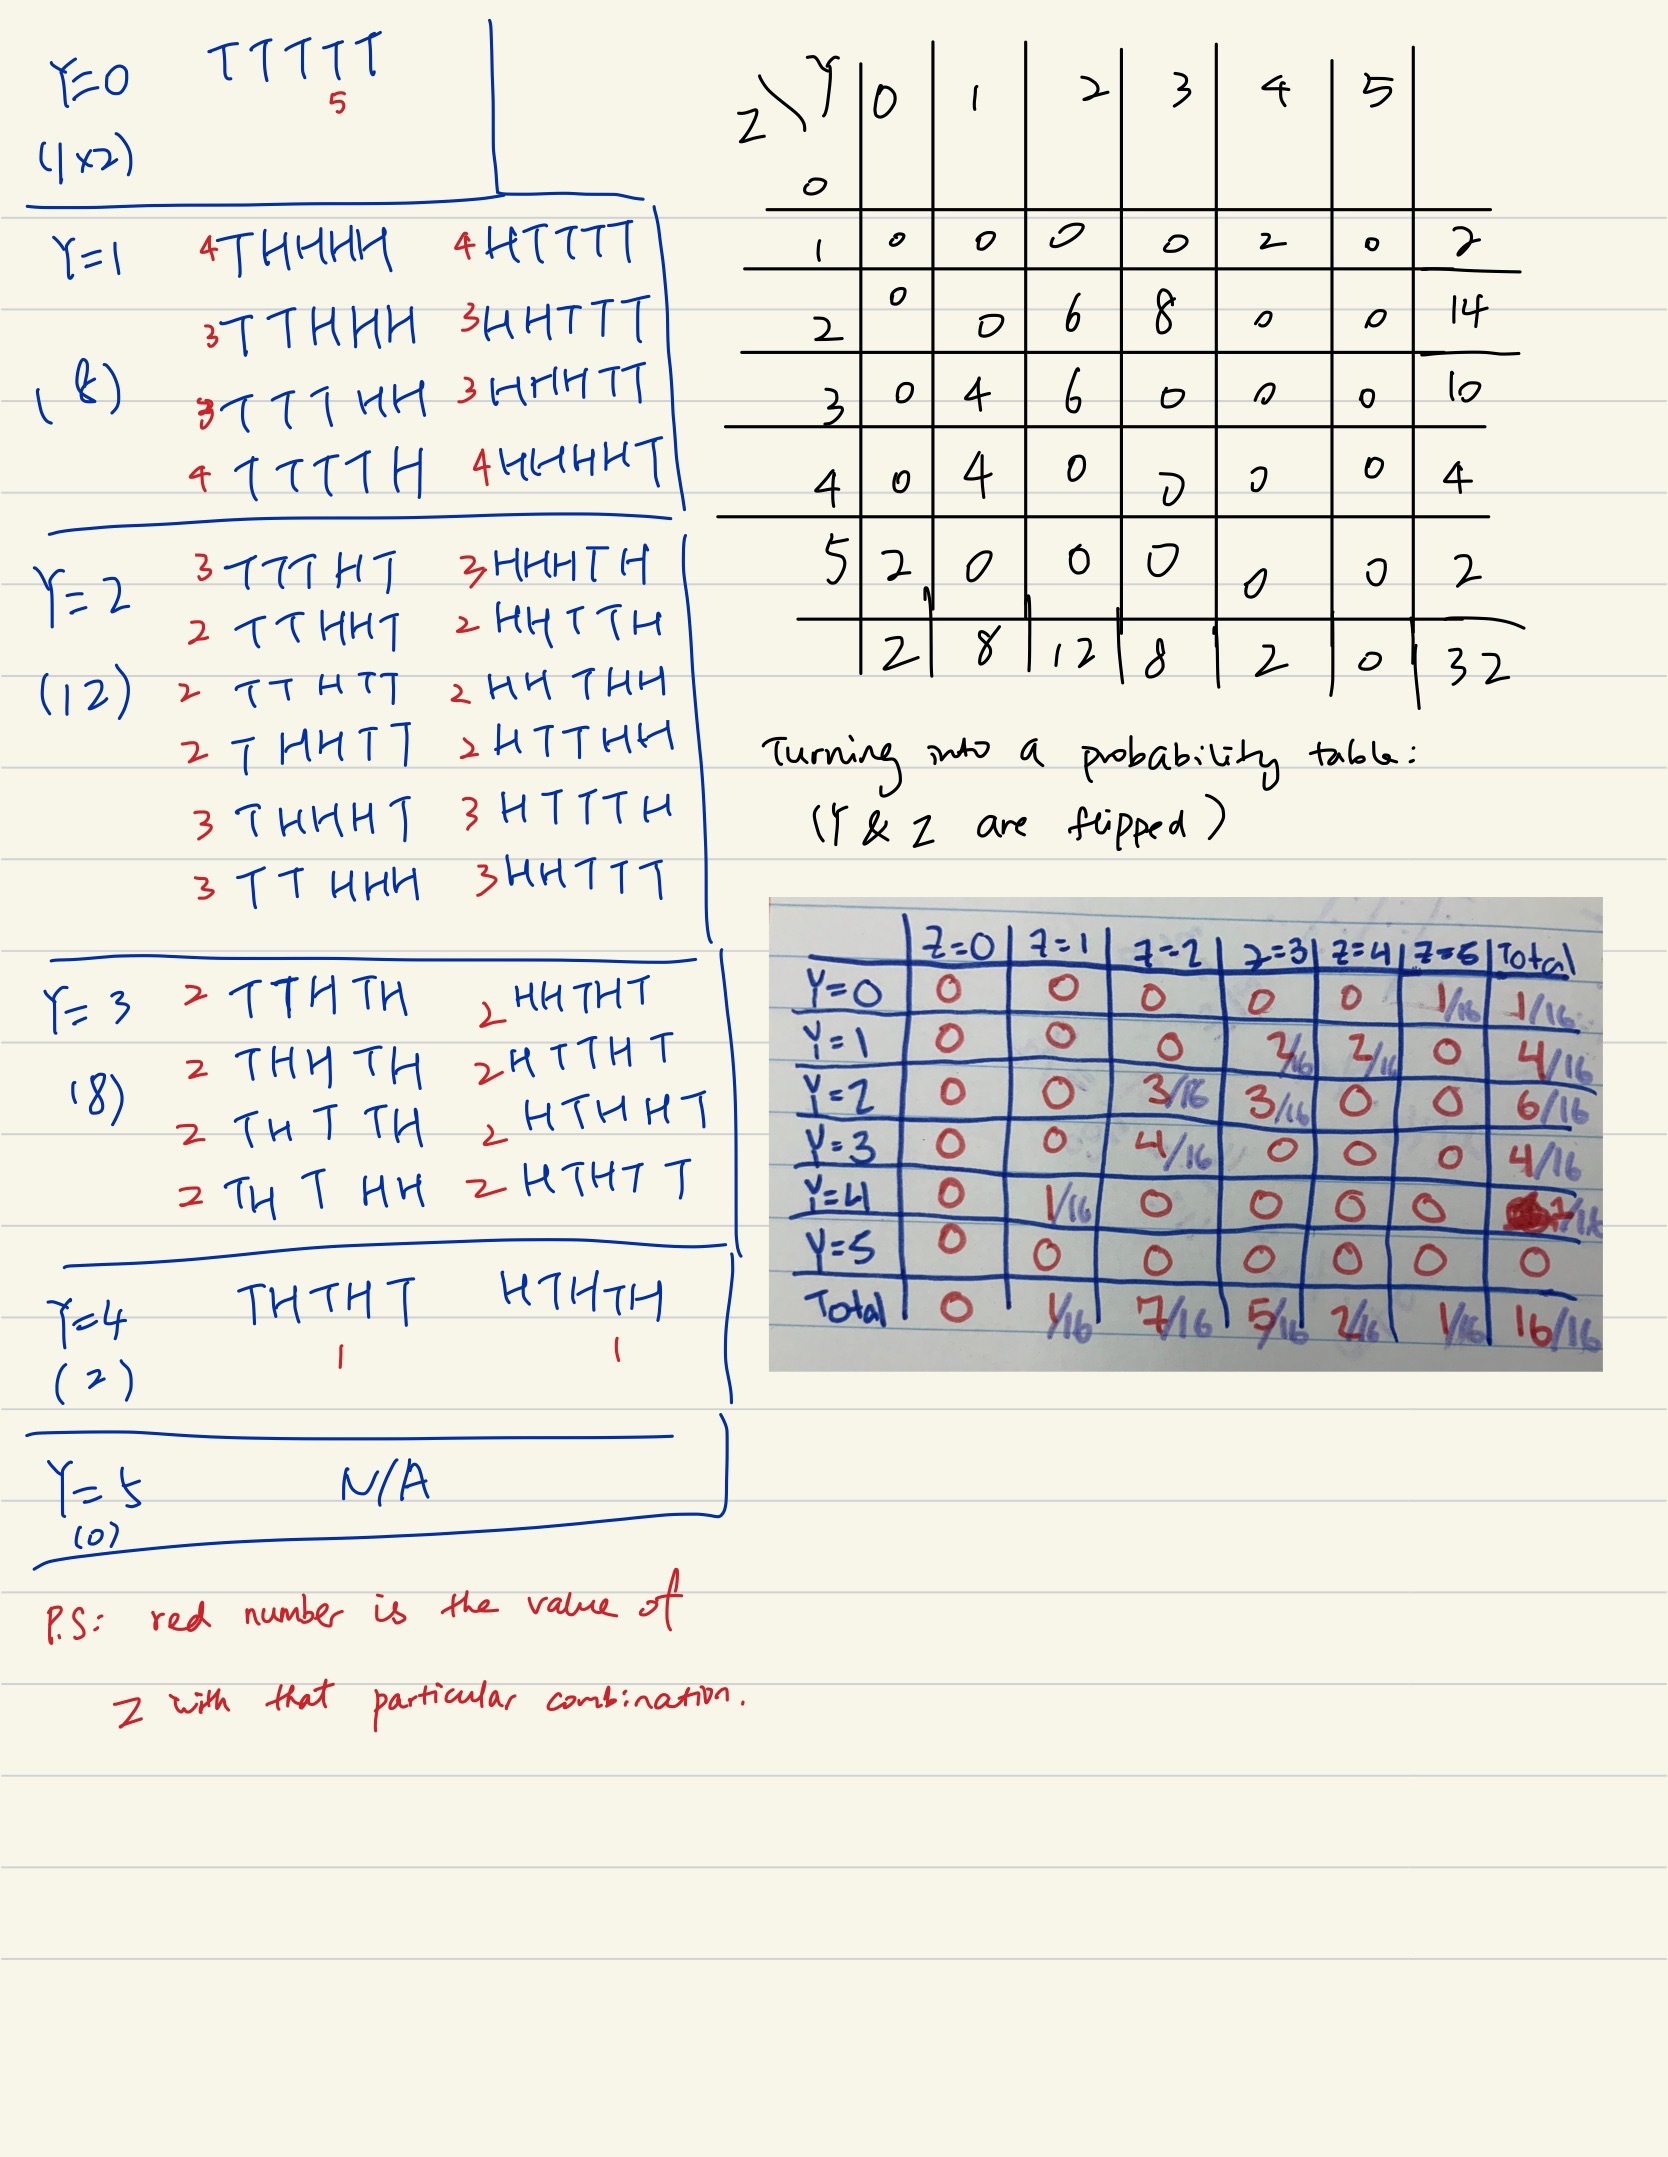 Y=0 TTTTT
5
(1×2)
Y=1 4 THHHH 4 HTTTT
3 TTHHH 3 HHTTT
(8) 3 TTTHH 3 HHHTT
4 TTTTH 4 HHHHT
Y=2 3 TTTHT 3 HHHTH
2 TTHHT 2 HHTTH
(12) 2 TTHTT 2 HHTHH
2 THHTT 2 HTTHH
3 THHHT 3 HTTTH
3 TTHHH 3 HHTTT
Y=3 2 TTHTH 2 HHTHT
(8) 2 THHTH 2 HTTHT
2 THTTH 2 HTHHT
2 THTHH 2 HTHTT
Y=4 THTHT HTHTH
1 1
(2)
Y=5 N/A
(0)
P.S: red number is the value of
Z with that particular combination.
Z\Y 0 1 2 3 4 5
0
1 0 0 0 0 2 0 2
2 0 0 6 8 0 0 14
3 0 4 6 0 0 0 10
4 0 4 0 0 0 0 4
5 2 0 0 0 0 0 2
2 8 12 8 2 0 32
Turning into a probability table:
(Y & Z are flipped)
Z=0 Z=1 Z=2 Z=3 Z=4 Z=5 Total
Y=0 0 0 0 0 0 1/16 1/16
Y=1 0 0 0 2/16 2/16 0 4/16
Y=2 0 0 3/16 3/16 0 0 6/16
Y=3 0 0 4/16 0 0 0 4/16
Y=4 0 1/16 0 0 0 0 1/16
Y=5 0 0 0 0 0 0 0
Total 0 1/16 7/16 5/16 2/16 1/16 16/16